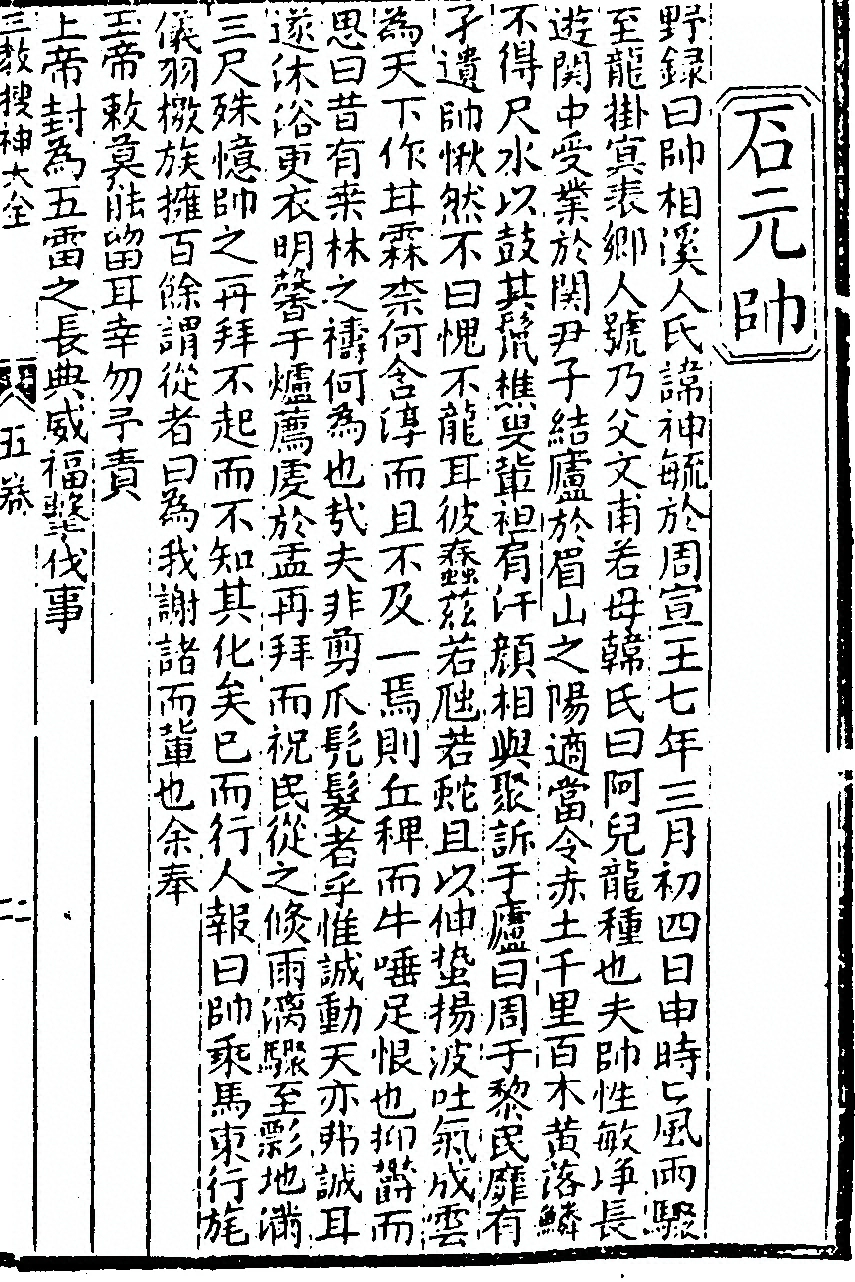 石元帥
野録曰帥相溪人氏諱神毓於周宣王七年三月初四日申時匕風雨驟
至龍掛寘表鄉人號乃父文甫若母韓氏曰阿兒龍種也夫帥性敏凈長
遊関中受業於関尹子結廬於眉山之陽適當令赤土千里百木黄落鱗
不得尺水以鼓其鬛樵叟軰袒肩汗顔相與聚訴于廬曰周于黎民靡有
孑遺帥愀然不曰愧不龍耳彼蠢茲若虺若蛇且以伸蟄揚波吐氣成雲
為天下作甘霖柰何含淳而且不及一焉則丘稗而牛唾足恨也抑欝而
思曰昔有桒林之禱何為也㢤夫非剪爪髡髮者乎惟誠動天亦弗誠耳
遂沐浴更衣明馨于爐薦虔於盂再拜而祝民從之倐雨漓驟至霶地滿
三尺殊憶帥之再拜不起而不知其化矣已而行人報曰帥乘馬東行旄
儀羽檄族擁百餘謂從者曰為我謝諸而軰也余奉
玉帝敕莫能留耳幸勿予責
上帝封為五雷之長典威福擊伐事
三教搜神大全
五卷
二